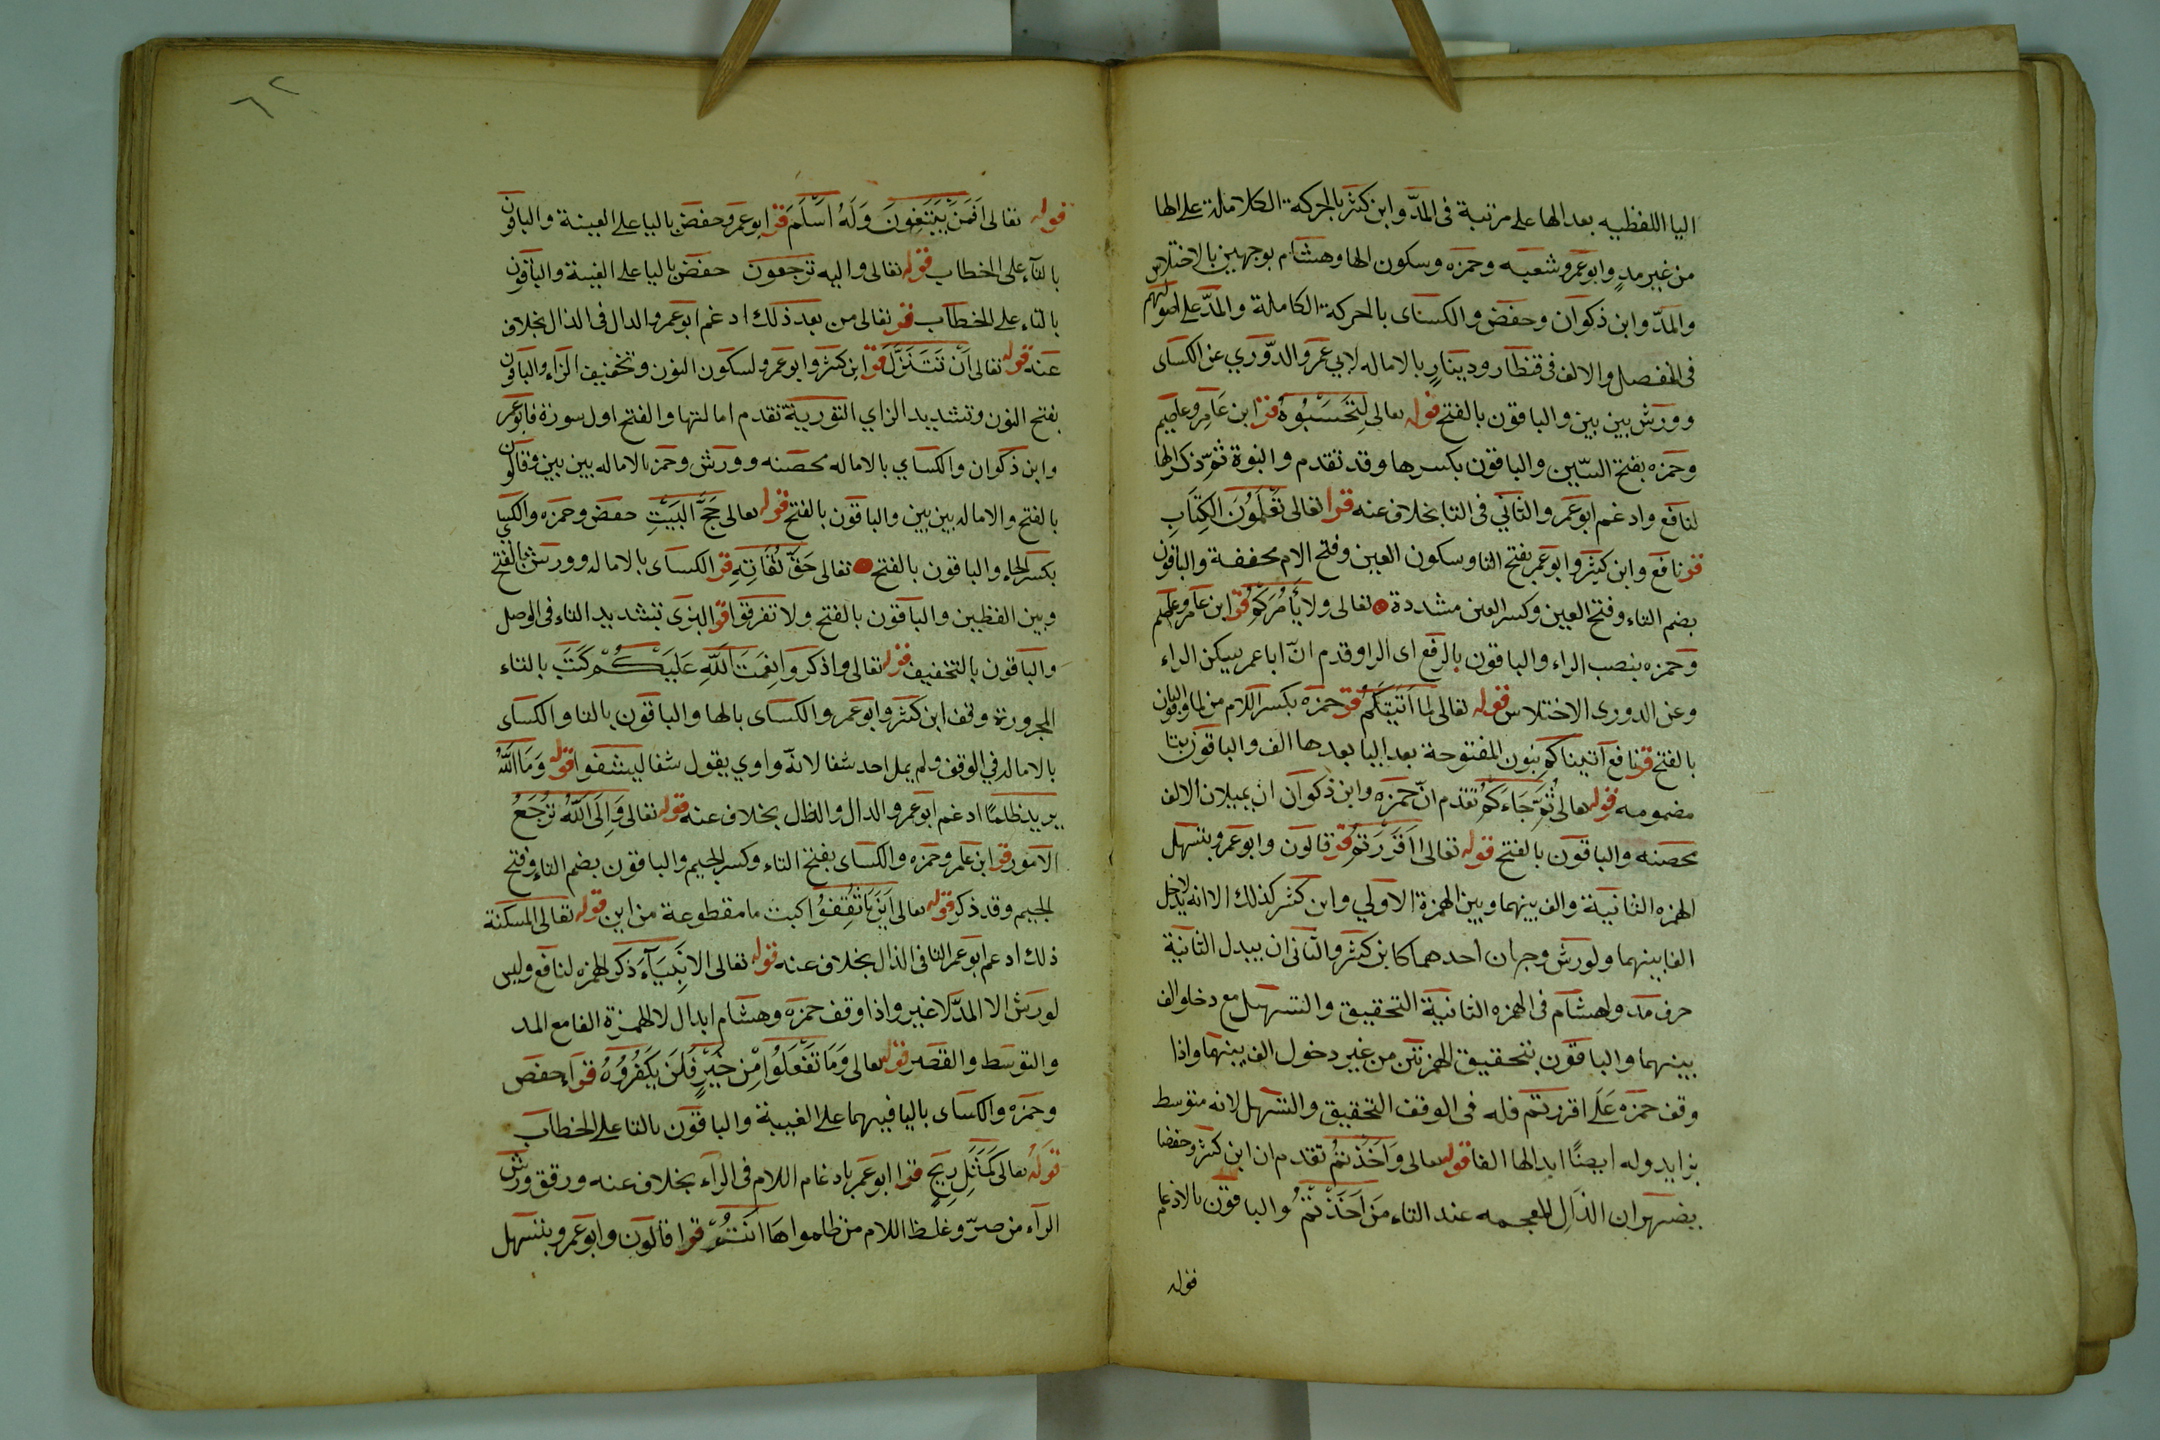 اليا اللفظيه بعد الها على مرتبة فى المدّ وابن كثر بالحركة الكلاملة على الها
من غير مدٍ وابو عمرو وشعبه وحمزه وسكون الها وهشام بوجهين بالاختلاس
والمدّ وابن ذكوان وحفض والكسناى بالحركة الكاملة والمدّ على اصولهم
فى المفصل والالف فى قنطار ودينارٍ بالاماله لابي عمرو الدّوري عن الكساى
وورش بين بين والباقون بالفتح قوله تعالى لِتَحْسَبُوهُ قرا ابن عَامِر وعاصِيم
وحمزه بفتح السّين والباقون بكسرها وقد تقدم والنبوة ثمّ ذكر الها
لنافع وادغم ابو عمر والثاني فى التا بخلاف عنه قرا تعالى تَعْلَمُونَ الكِتَابِ
قر نافع وابن كثر وابو عمر بفتح التا وسكون العين وفتح الام مخففة والباقون
بضم التاء وفتح العين وكسر العين مشددة تعالى ولا يَأْمُركُم قرا ابن عامر وعاصم
وحمزه بنصب الراء والباقون بالرفع اى الرا وقدم انّ ابا عمر يسكن الراء
وعن الدورى الاختلاس قوله تعالى لما اَتَيْتكمُ قر حمزه بكسر اللام من لما والباقون
بالفتح قر نافع آتيناكم بنون المفتوحة بعد اليا بعدها الف والباقون بتا
مضمومه قوله تعالى ثُمَّ جَاءَكُمْ تقدم انّ حمزه وابن ذكوان ان يميلان الالف
محصنه والباقون بالفتح قوله تعالى ااَقْرَرْتم قر قالون وابو عمر وبتسهل
الهمزه الثانية والف بينهما وبين الهمزة الاولي وابن كثر كذلك الا انه لا يدخل
الفا بينهما ولورش وجهان احدهما كابن كثر والثانى ان يبدل الثانية
حرف مد ولهشام فى الهمزه الثانية التحقيق والتسهيل مع دخلو الف
بينهما والباقون بتحقيق الهمزتين من غير دخول الف بينهما واذا
وقف حمزه عَلَى اقررتم فله فى الوقف التحقيق والتسهل لانه متوسط
بزايد وله ايضًا ابدالها الفا قوله تعالى وَاَخَذْتم تقدم ان ابن كثر وحفضا
يضهران الذال المعجمه عند التاء من اَخَذْتمُ والباقون بالاذغام
قوله
٦٢
قوله تعالى اَفَمَنْ يَبْتَغِونَ وَلَهُ اَسْلَمَ قر ابو عمر وحفض باليا على الغيبة والباقون
بالتآء على الخطاب قوله تعالى واليه ترجعون حفض باليا على الغيبة والباقون
بالتاء على الخطاب قو تعالى من بعد ذلك ادغم ابو عمر والدال فى الذال بخلاف
عنه قوله تعالى اَنْ تَتَنَزَّلَ قر ابن كثر وابو عمرو لسكون النون وتخفيف الزاء والباقون
بفتح النون وتشديد الزاي التورية تقدم امالتها والفتح اول سورة فابو عمر
وابن ذكوان والكساي بالاماله محصنه وورش وحمز بالاماله بين بين وقالون
بالفتح والاماله بين بين والباقون بالفتح قوله تعالى حَجّ البَيْتِ حفض وحمزه والكسا
بكسر الحاء والباقون بالفتح تعالى حَقّ تُقَاتِهِ قر الكساى بالاماله وورش بالفتح
وبين الفظين والباقون بالفتح ولا تفرقوا قو البزى تشديد التاء فى الوصل
والباقون بالتخفيف قوله تعالى واذكروا نِعْمَتَ اللَّهِ عَلَيْكُمْ كَتَبَ بالتاء
المجرورة وقف ابن كثر وابو عمر والكساى بالها والباقون بالتا والكساى
بالاماله فى الوقف ولم يمل احد شفا لانه واوي يقول شفا ليشفوا قوله وَمَا اللَّهُ
يريد ظلمًا ادغم ابو عمر والدال والظال بخلاف عنه قوله تعالى وَاِلَى اللَّهُ تُرْجَعُ
الامور قر ابن عامر وحمزه والكساى بفتح التاء وكسر الجيم والباقون بضم التاء وفتح
لجيم وقد ذكر قوله تعالى اَيْنَ مَا ثُقِفُوُا كبت ما مقطوعة من اين قوله تعالى المسكنة
ذلك ادعم ابو عمر التا فى الذال بخلاف عنه قوله تعالى الانبِيَآءَ ذكر الهمزه لنافع وليس
لورش الا المدّ لا غير واذا وقف حمزه وهشام ابدال لا للهمزة الفا مع المد
والتوسط والقصر قوله تعالى وَمَا تَفْعَلُوُا مْن خَيْرٍ فَلَنْ يُكْفَرُوُهُ قوا حفص
وحمزه والكساى باليا فيهما على الغيبة والباقون بالتا على الخطاب
قوله تعالى كَمَثَلِ رِيحٍ قرا ابو عمر بادغام اللام فى الرآء بخلاف عنه ورقق ورش
الرآء من صرّ وغلظ اللام من ظلموا هَا انتُمْ قرا قالون وابو عمر وبتسهل